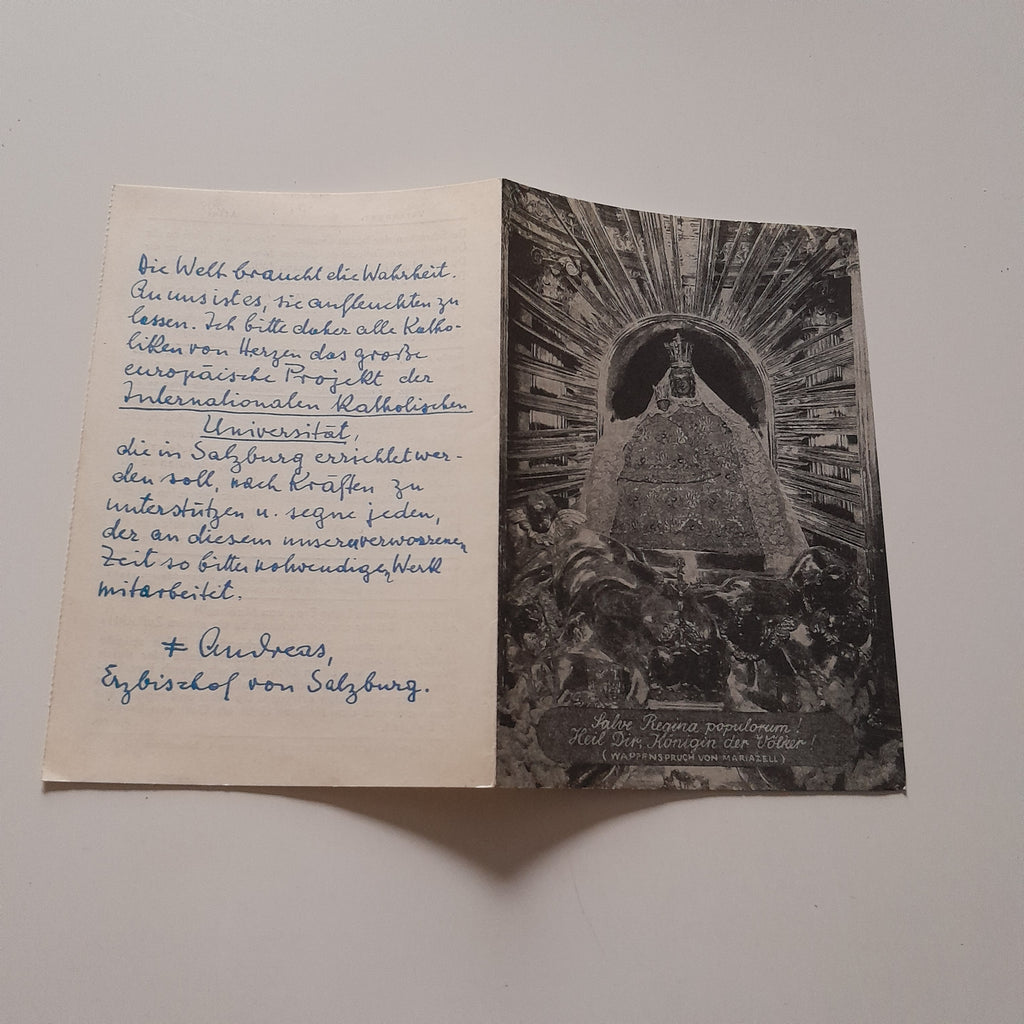 Die Welt braucht die Wahrheit.
An uns ist es, sie aufleuchten zu
lassen. Ich bitte daher alle Katho-
liken von Herzen das große
europäische Projekt der
Internationalen Katholischen
Universität,
die in Salzburg errichtet wer-
den soll, nach Kräften zu
unterstützen u. segne jeden,
der an diesem unserer verworrenen
Zeit so bitter notwendigen Werk
mitarbeitet.
+ Andreas,
Erzbischof von Salzburg.
Salve Regina populorum!
Heil Dir, Königin der Völker!
(WAPPENSPRUCH VON MARIAZELL)